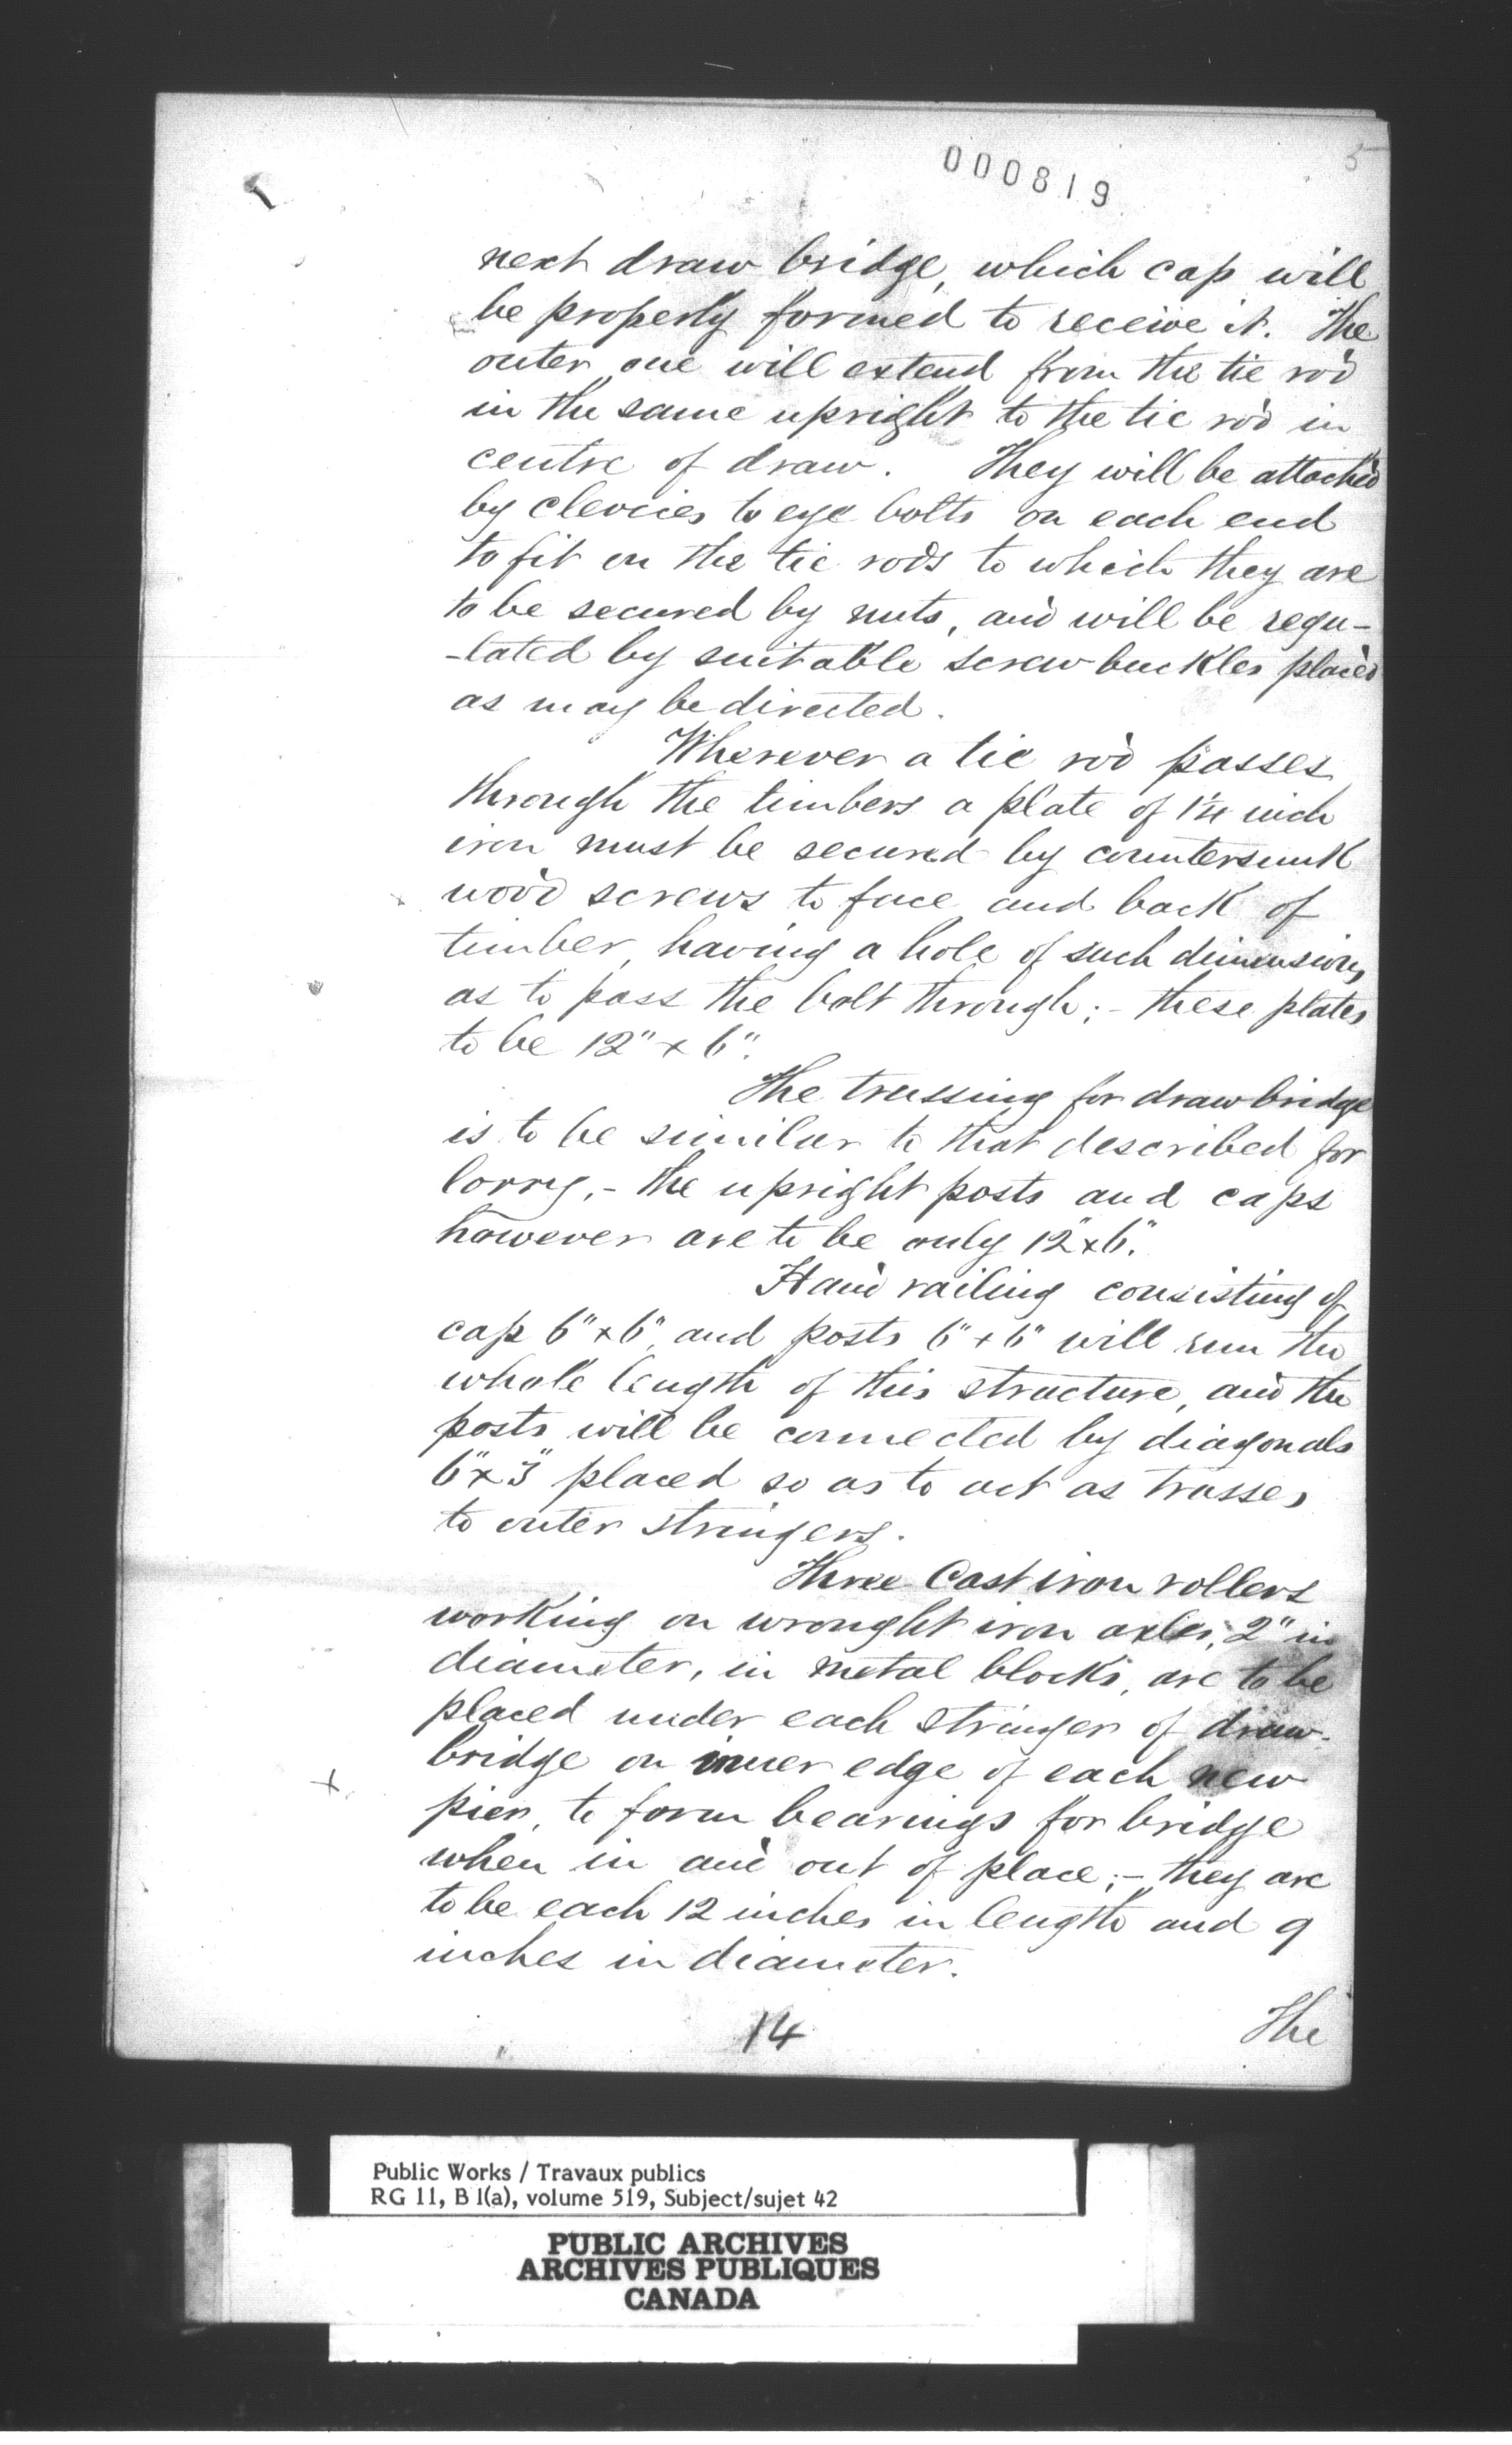 000819
5
next draw bridge, which cap will
be properly formed to receive it. The
outer one will extend from the tie rod
in the same upright to the tie rod in
centre of draw. They will be attached
by clevices to eye bolts on each end
to fit on the tie rods to which they are
to be secured by nuts, and will be regu-
-lated by suitable screw buckles placed
as may be directed.
Wherever a tie rod passes
through the timbers a plate of inch
iron must be secured by countersunk
wood screws to face and back of
timber, having a hole of such dimensions
as to pass the bolt through;- these plates
to be 12" x 6".
The trussing for draw bridge
is to be similar to that described for
lorry,- the upright posts and caps
however are to be only 12" x 6".
Hand railing consisting of
cap 6" x 6", and posts 6" x 6" will run the
whole length of this structure, and the
posts will be connected by diagonals
6" x 3" placed so as to act as trusses
to outer stringers.
Three Cast iron rollers
working on wrought iron axles, 2" in
diameter, in metal blocks, are to be
placed under each stringer of draw-
bridge on inner edge of each new
x
pier, to form bearings for bridge
when in and out of place;- they are
to be each 12 inches in length and 9
inches in diameter.
14
The
Public Works / Travaux publics
RG 11, B 1(a), volume 519, Subject/sujet 42
PUBLIC ARCHIVES
ARCHIVES PUBLIQUES
CANADA